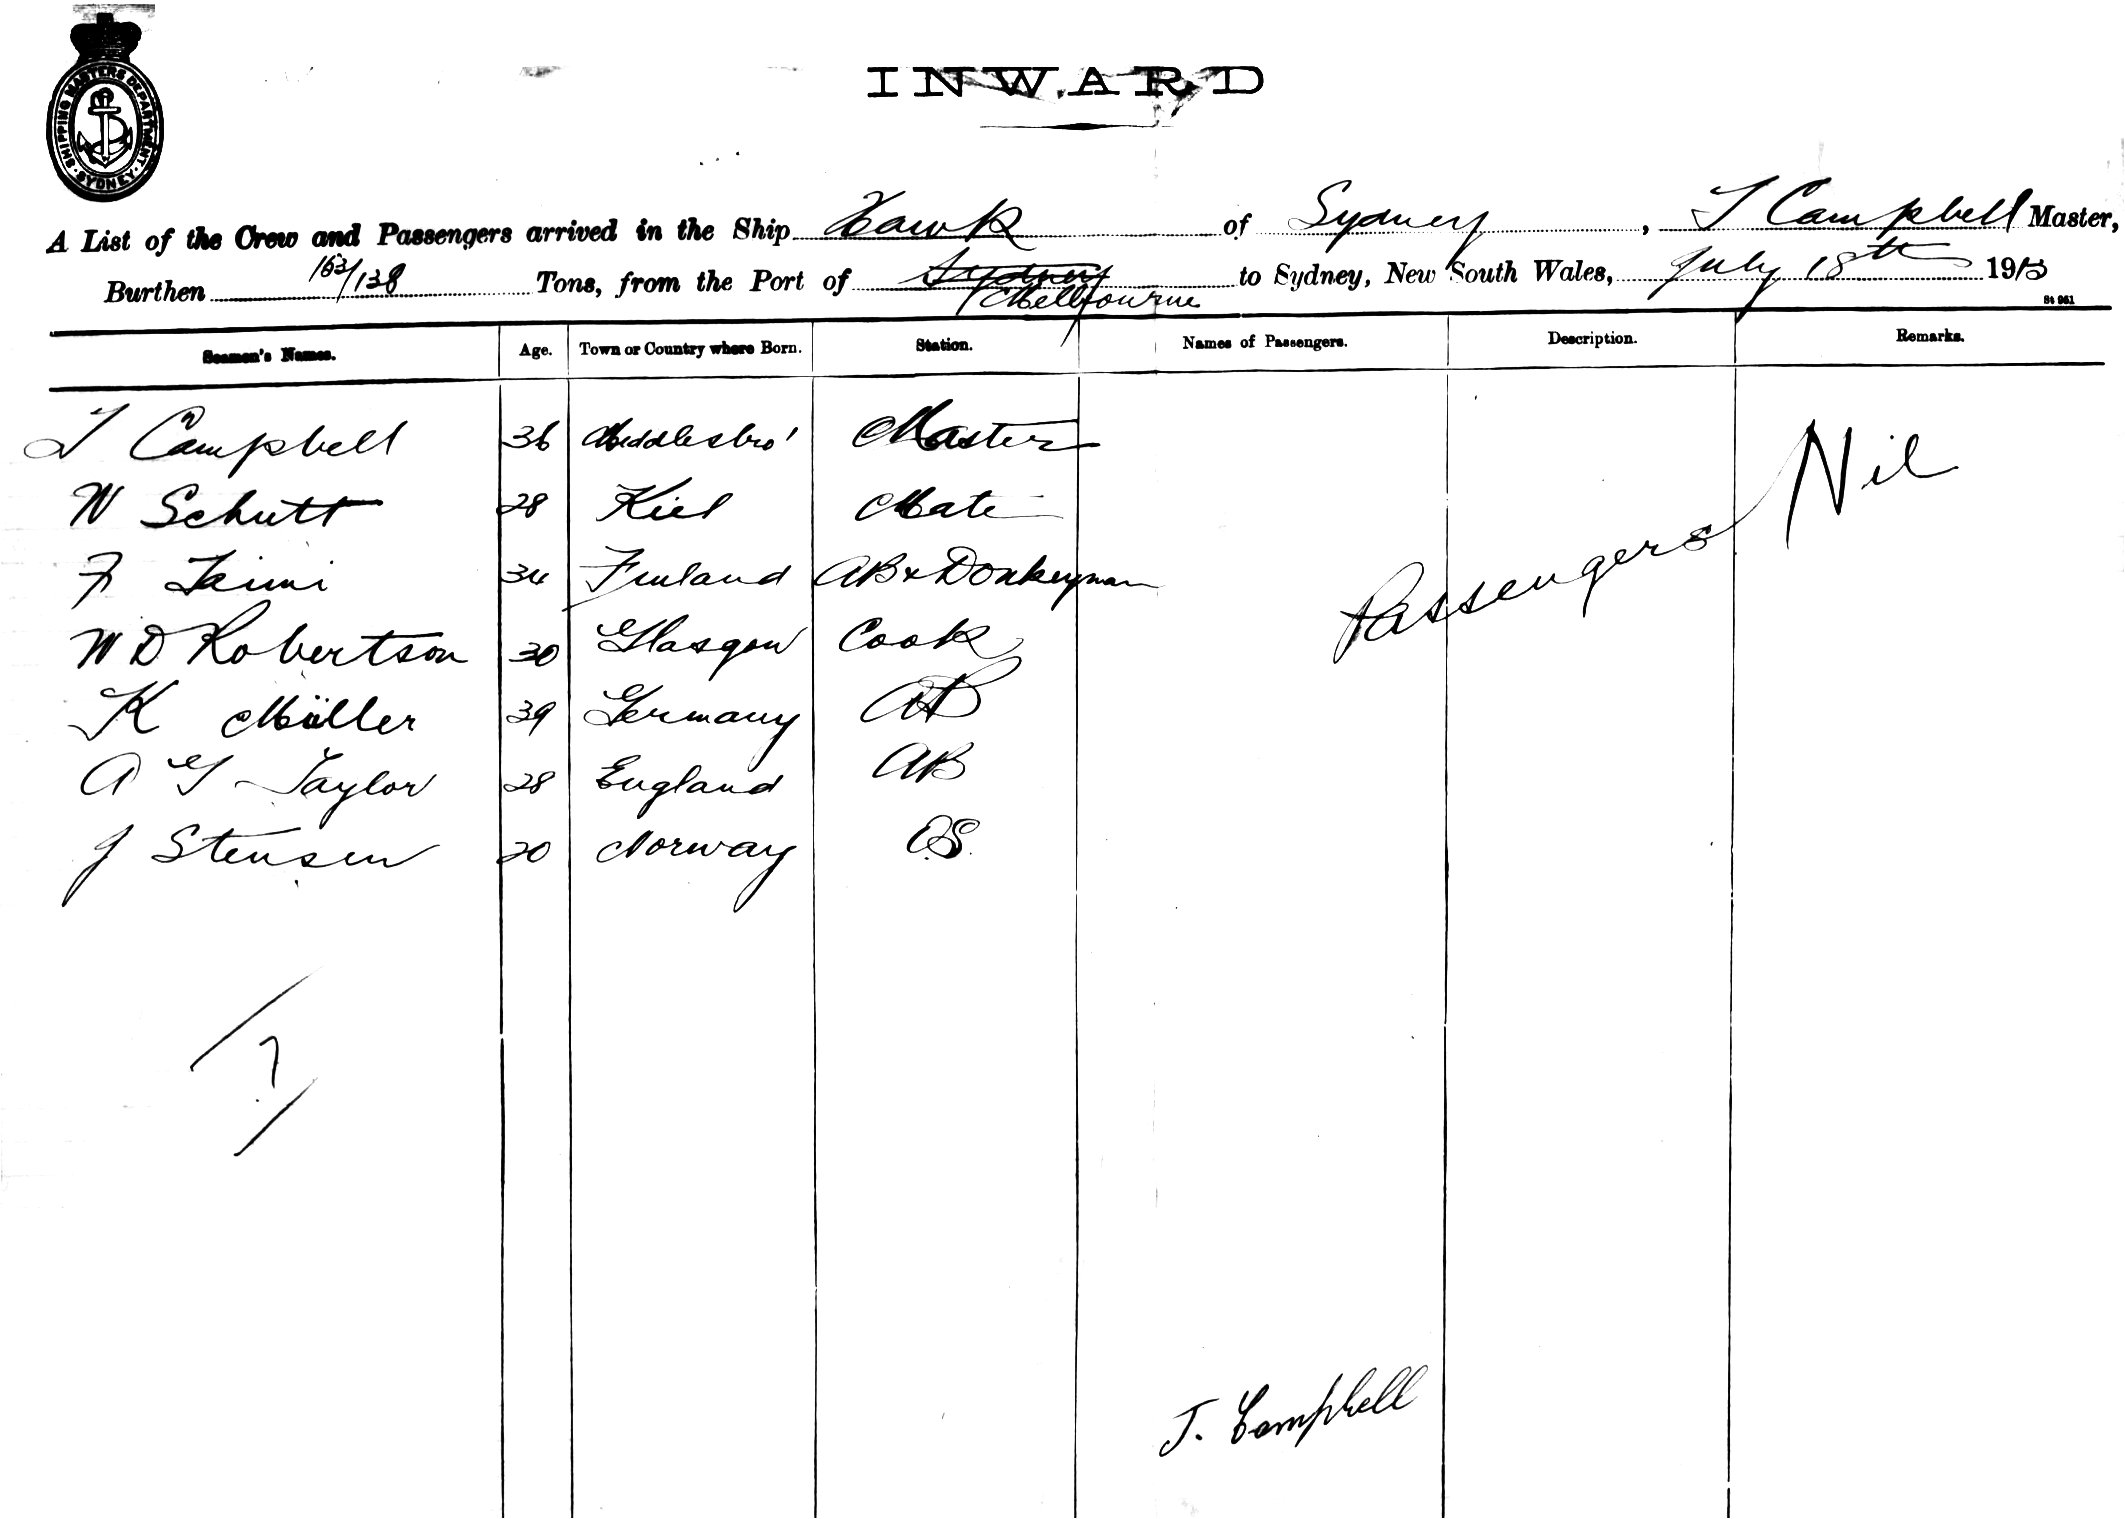 SHIPPING MASTERS DEPARTMENT
SYDNEY
INWARD
A List of the Crew and Passengers arrived in the Ship Hawk of Sydney, T Campbell Master,
Burthen 163/138 Tons, from the Port of Sydney Melbourne to Sydney, New South Wales, July 18th 1913
Seamen's Names. Age. Town or Country where Born. Station. Names of Passengers. Description. Remarks.
T Campbell 36 Middlesbro' Master
W Schutt 28 Kiel Mate
F Taimi 34 Finland AB & Donkeyman
W D Robertson 30 Glasgow Cook
K Müller 39 Germany AB
A G Taylor 28 England AB
J Stensen 20 Norway O.S.
Passengers Nil
7
T. Campbell